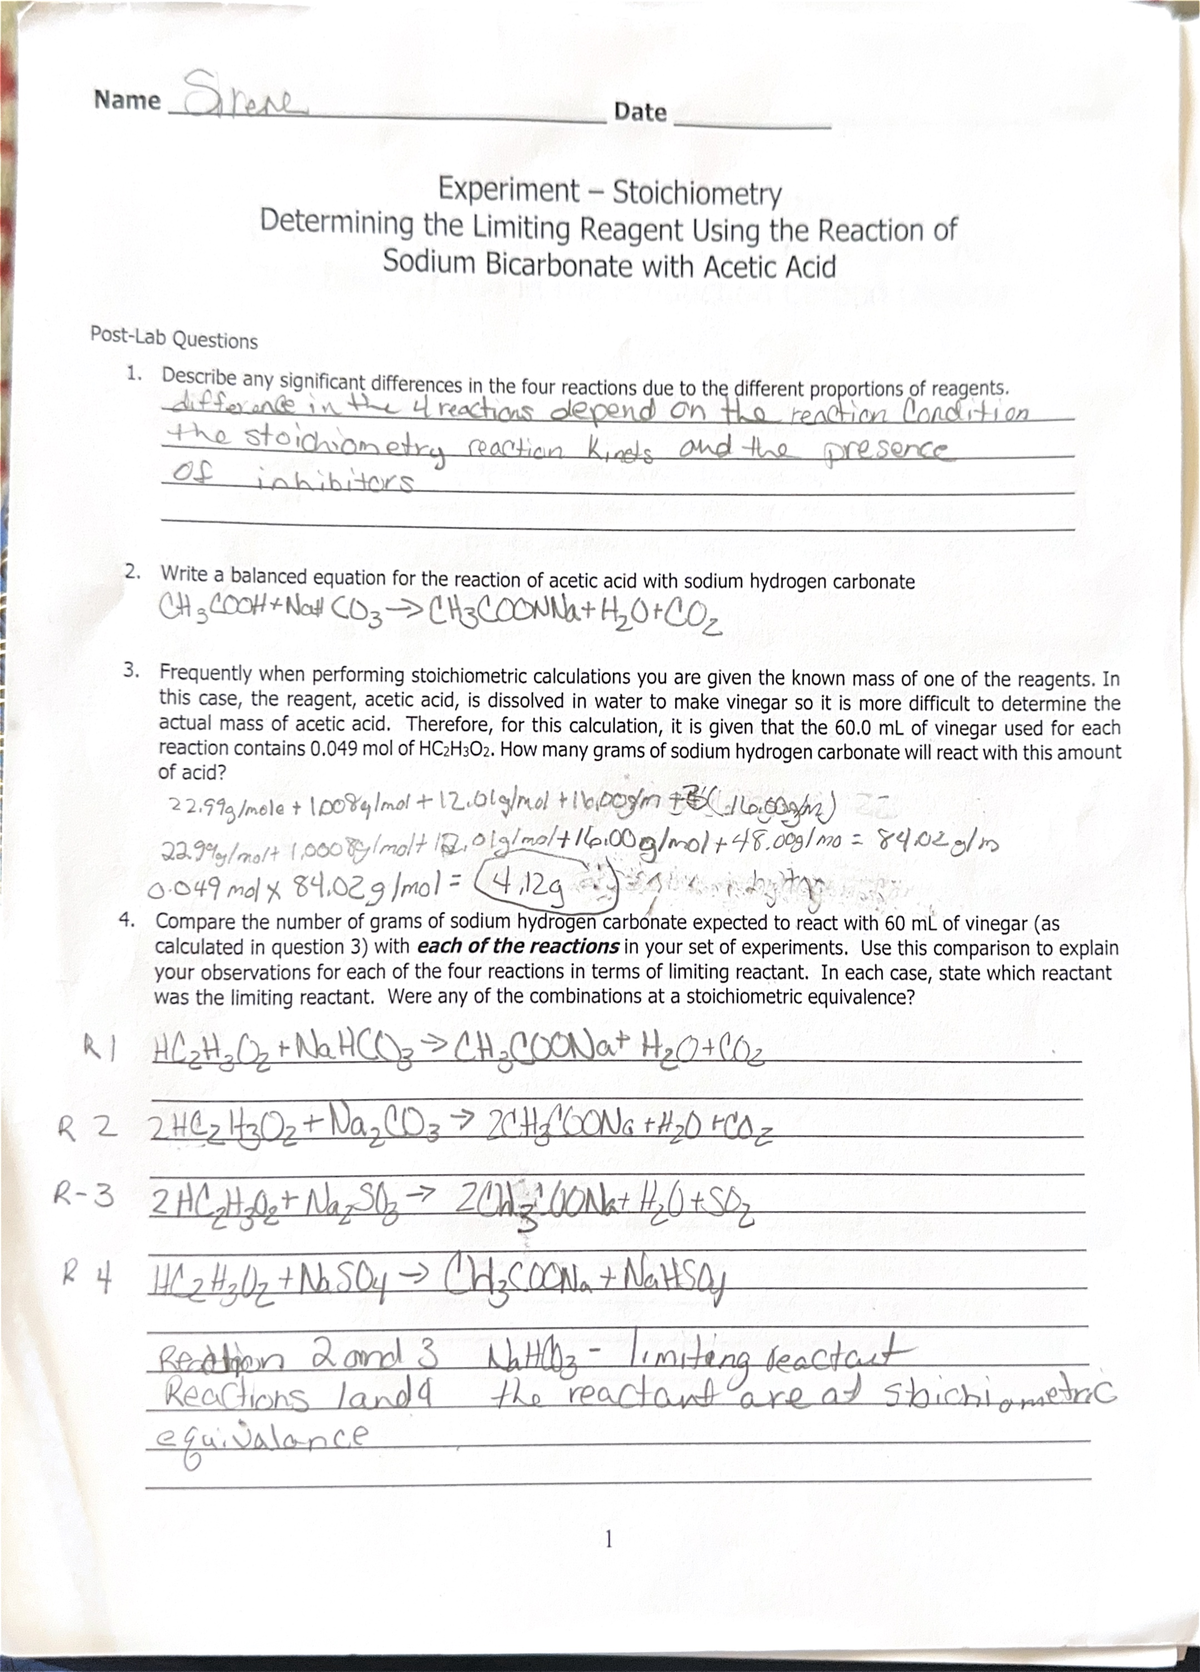 Name Sirene Date
Experiment – Stoichiometry
Determining the Limiting Reagent Using the Reaction of
Sodium Bicarbonate with Acetic Acid
Post-Lab Questions
1. Describe any significant differences in the four reactions due to the different proportions of reagents.
difference in the 4 reactions depend on the reaction Condition
the stoichiometry reaction kinets and the presence
of inhibitors
2. Write a balanced equation for the reaction of acetic acid with sodium hydrogen carbonate
CH3COOH + NaH CO3 → CH3COONNa + H2O + CO2
3. Frequently when performing stoichiometric calculations you are given the known mass of one of the reagents. In
this case, the reagent, acetic acid, is dissolved in water to make vinegar so it is more difficult to determine the
actual mass of acetic acid. Therefore, for this calculation, it is given that the 60.0 mL of vinegar used for each
reaction contains 0.049 mol of HC2H3O2. How many grams of sodium hydrogen carbonate will react with this amount
of acid?
22.99g/mole + 1.008g/mol + 12.01g/mol + 16.00g/m + (16.00g/m)
22.99g/mol + 1.0008g/mol + 12.01g/mol + 16.00g/mol + 48.00g/mo = 84.02 g/m
0.049 mol x 84.02 g/mol = 4.12g
4. Compare the number of grams of sodium hydrogen carbonate expected to react with 60 mL of vinegar (as
calculated in question 3) with each of the reactions in your set of experiments. Use this comparison to explain
your observations for each of the four reactions in terms of limiting reactant. In each case, state which reactant
was the limiting reactant. Were any of the combinations at a stoichiometric equivalence?
R1 HC2H3O2 + NaHCO3 → CH3COONa + H2O + CO2
R 2 2HC2H3O2 + Na2CO3 → 2CH3COONa + H2O + CO2
R-3 2HC2H3O2 + Na2SO3 → 2CH3COONa + H2O + SO2
R 4 HC2H3O2 + NaSO4 → CH3COONa + NaHSO4
Reaction 2 and 3 NaHCO3 - limiting reactact
Reactions 1 and 4 the reactant are at stoichiometric
equivalance
1